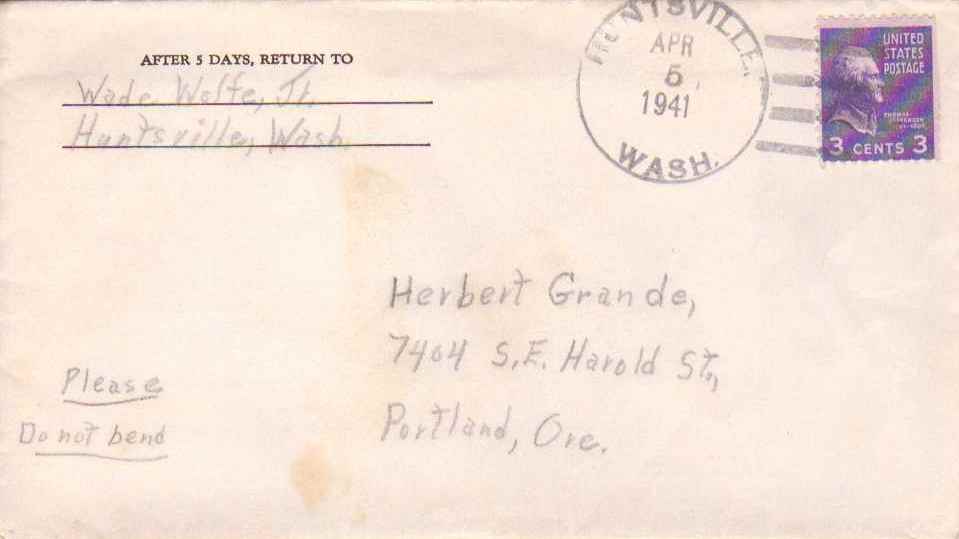 AFTER 5 DAYS, RETURN TO
Wade Wolfe, Jr.
Huntsville, Wash.
HUNTSVILLE,
APR
5
1941
WASH.
UNITED
STATES
POSTAGE
THOMAS
JEFFERSON
3 CENTS 3
Herbert Grande,
7404 S.E. Harold St.,
Portland, Ore.
Please
Do not bend